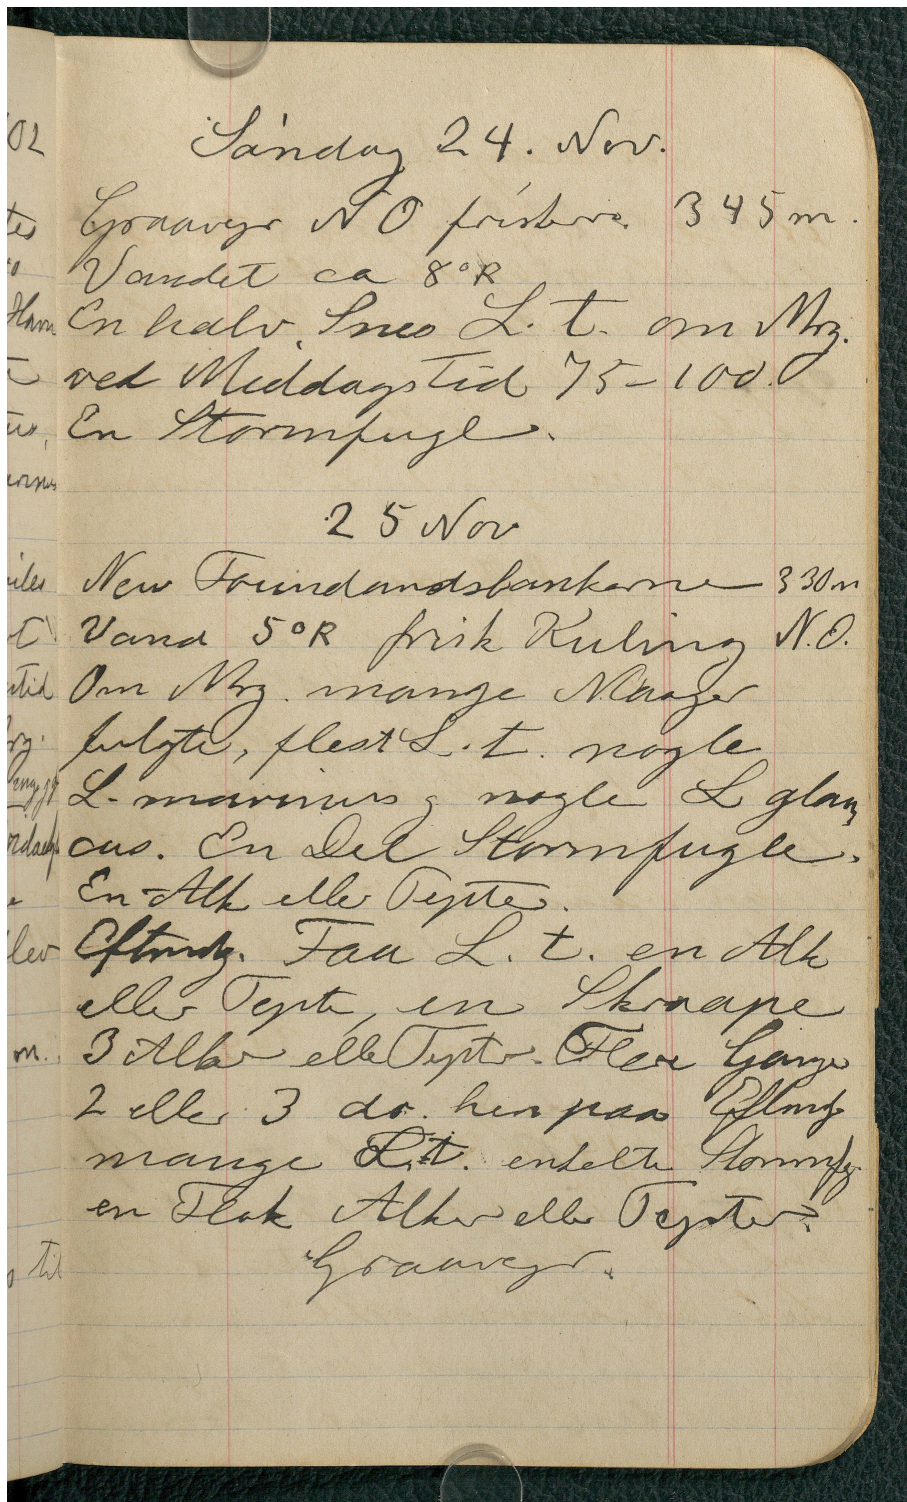 Søndag 24. Nov.
Graavejr N O friskere. 345 m.
Vandet ca 8° R
En halv Snes L. t. om Mrg.
ved Middagstid 75-100.
En Stormfugl.
25 Nov
New Foundandsbankerne 330 m
Vand 5° R frisk Kuling N.O.
Om Mrg. mange Maager
fulgte, flest L. t. nogle
L. marinus og nogle L glau
cus. En Del Stormfugle.
En Alk eller Tejste.
Eftmdg. Faa L. t. en Alk
eller Tejste, en Skraape
3 Alker eller Tejster. Flere Gange
2 eller 3 do. hen paa Eftmdg
mange L. t. enkelte Stormfgl
en Flok Alker eller Tejster.
Graavejr.